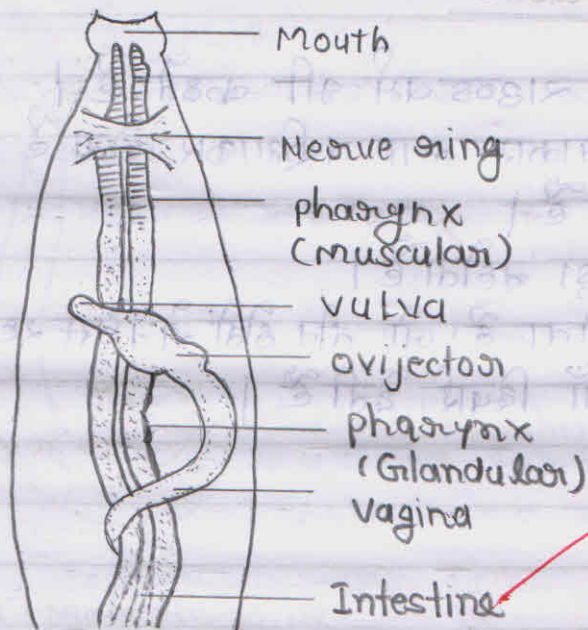 Mouth
Nerve ring
pharynx
(muscular)
vulva
ovijector
pharynx
(Glandular)
vagina
Intestine